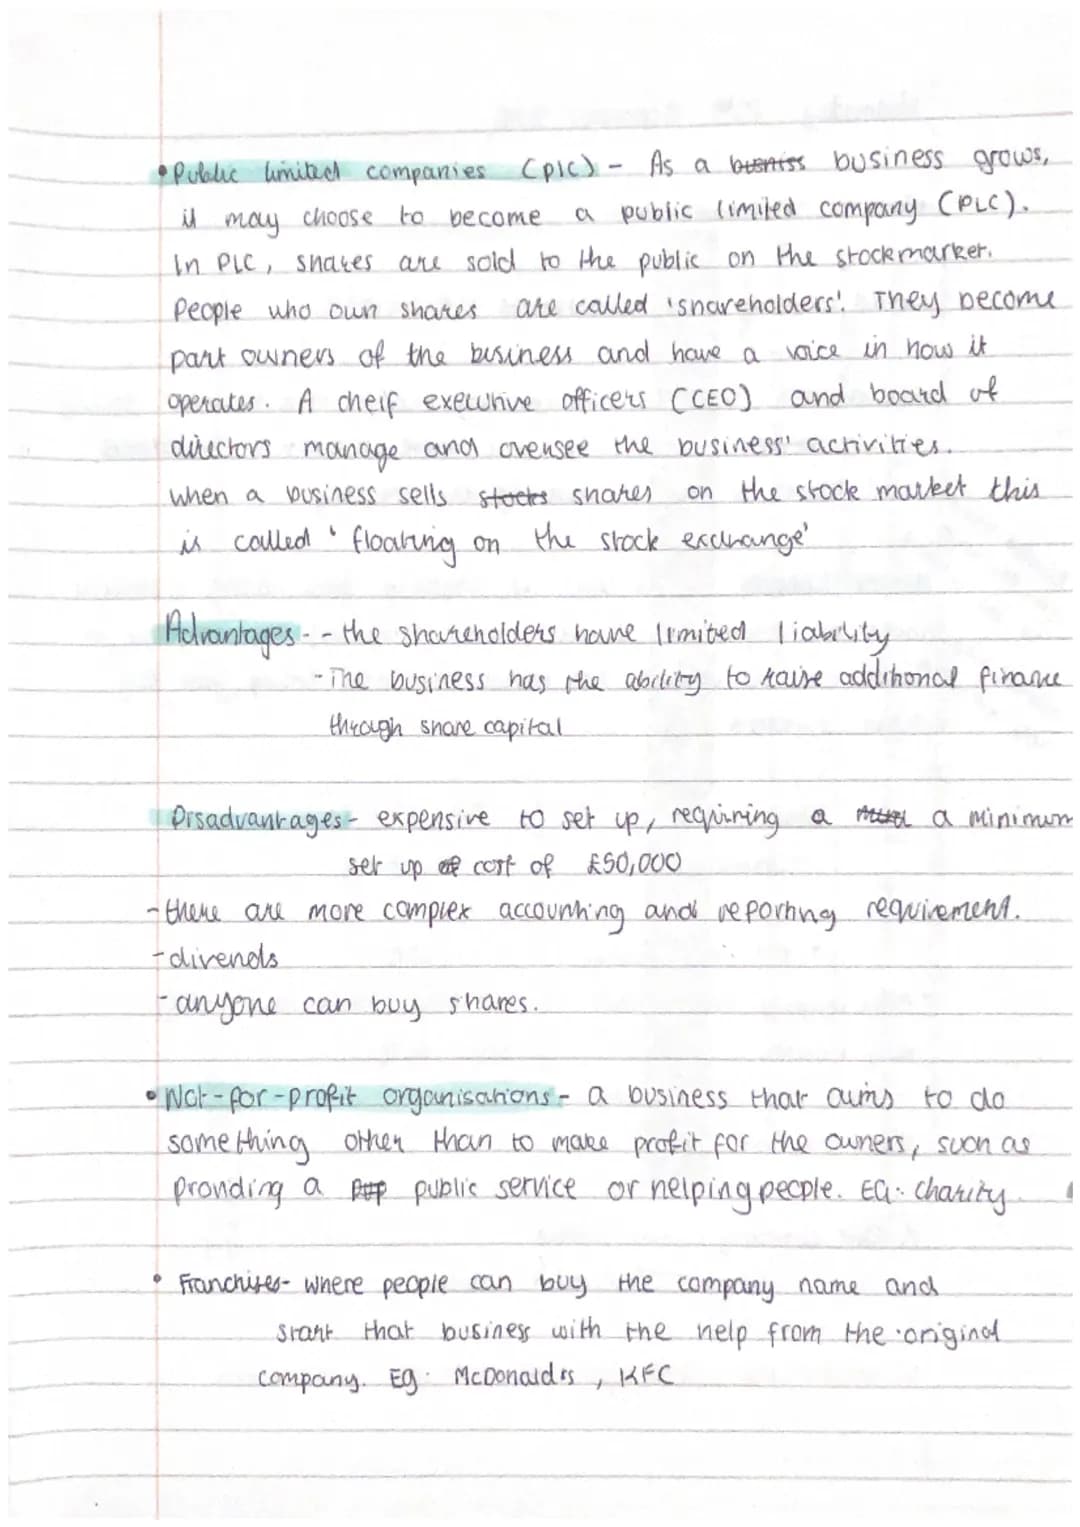 • Public limited companies (plc) - As a busniss business grows,
it may choose to become a public limited company (PLC).
In PLC, shares are sold to the public on the stockmarket.
People who own shares are called 'shareholders'. They become
part owners of the business and have a voice in how it
operates. A cheif executive officers (CEO) and board of
directors manage and oversee the business' activities.
when a business sells stocks shares on the stock market this
is called 'floating on the stock exchange'
Advantages - - the shareholders have limited liability
- The business has the ability to raise additional finance
through share capital
Disadvantages - expensive to set up, requiring a a minimum
set up of cost of £50,000
- there are more complex accounting and reporting requirement.
- divends
- anyone can buy shares.
• Not-for-profit organisations - a business that aims to do
something other than to make profit for the owners, such as
providing a pup public service or helping people. EG: charity
• Franchises - where people can buy the company name and
start that business with the help from the original
company. Eg: McDonald's, KFC